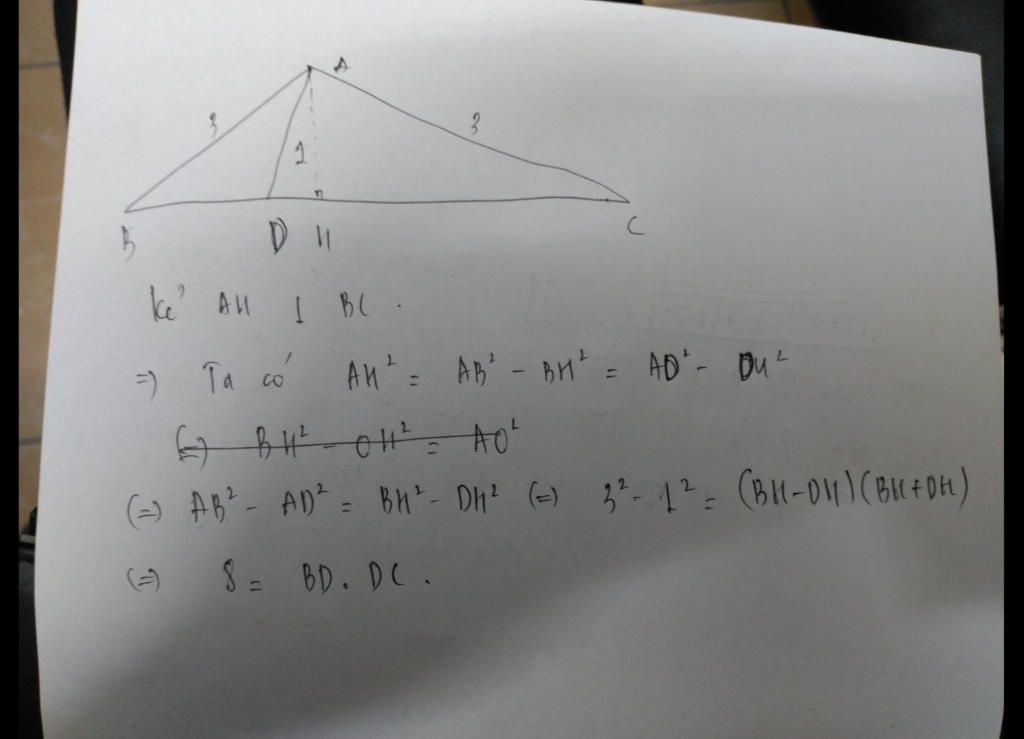 A
3 3
1
B D H C
kẻ AH ⊥ BC .
=) Ta có AH² = AB² - BH² = AD² - DH²
(=) BH² - OH² = AO²
(=) AB² - AD² = BH² - DH² (=) 3² - 1² = (BH-DH)(BH+DH)
(=) 8 = BD . DC .